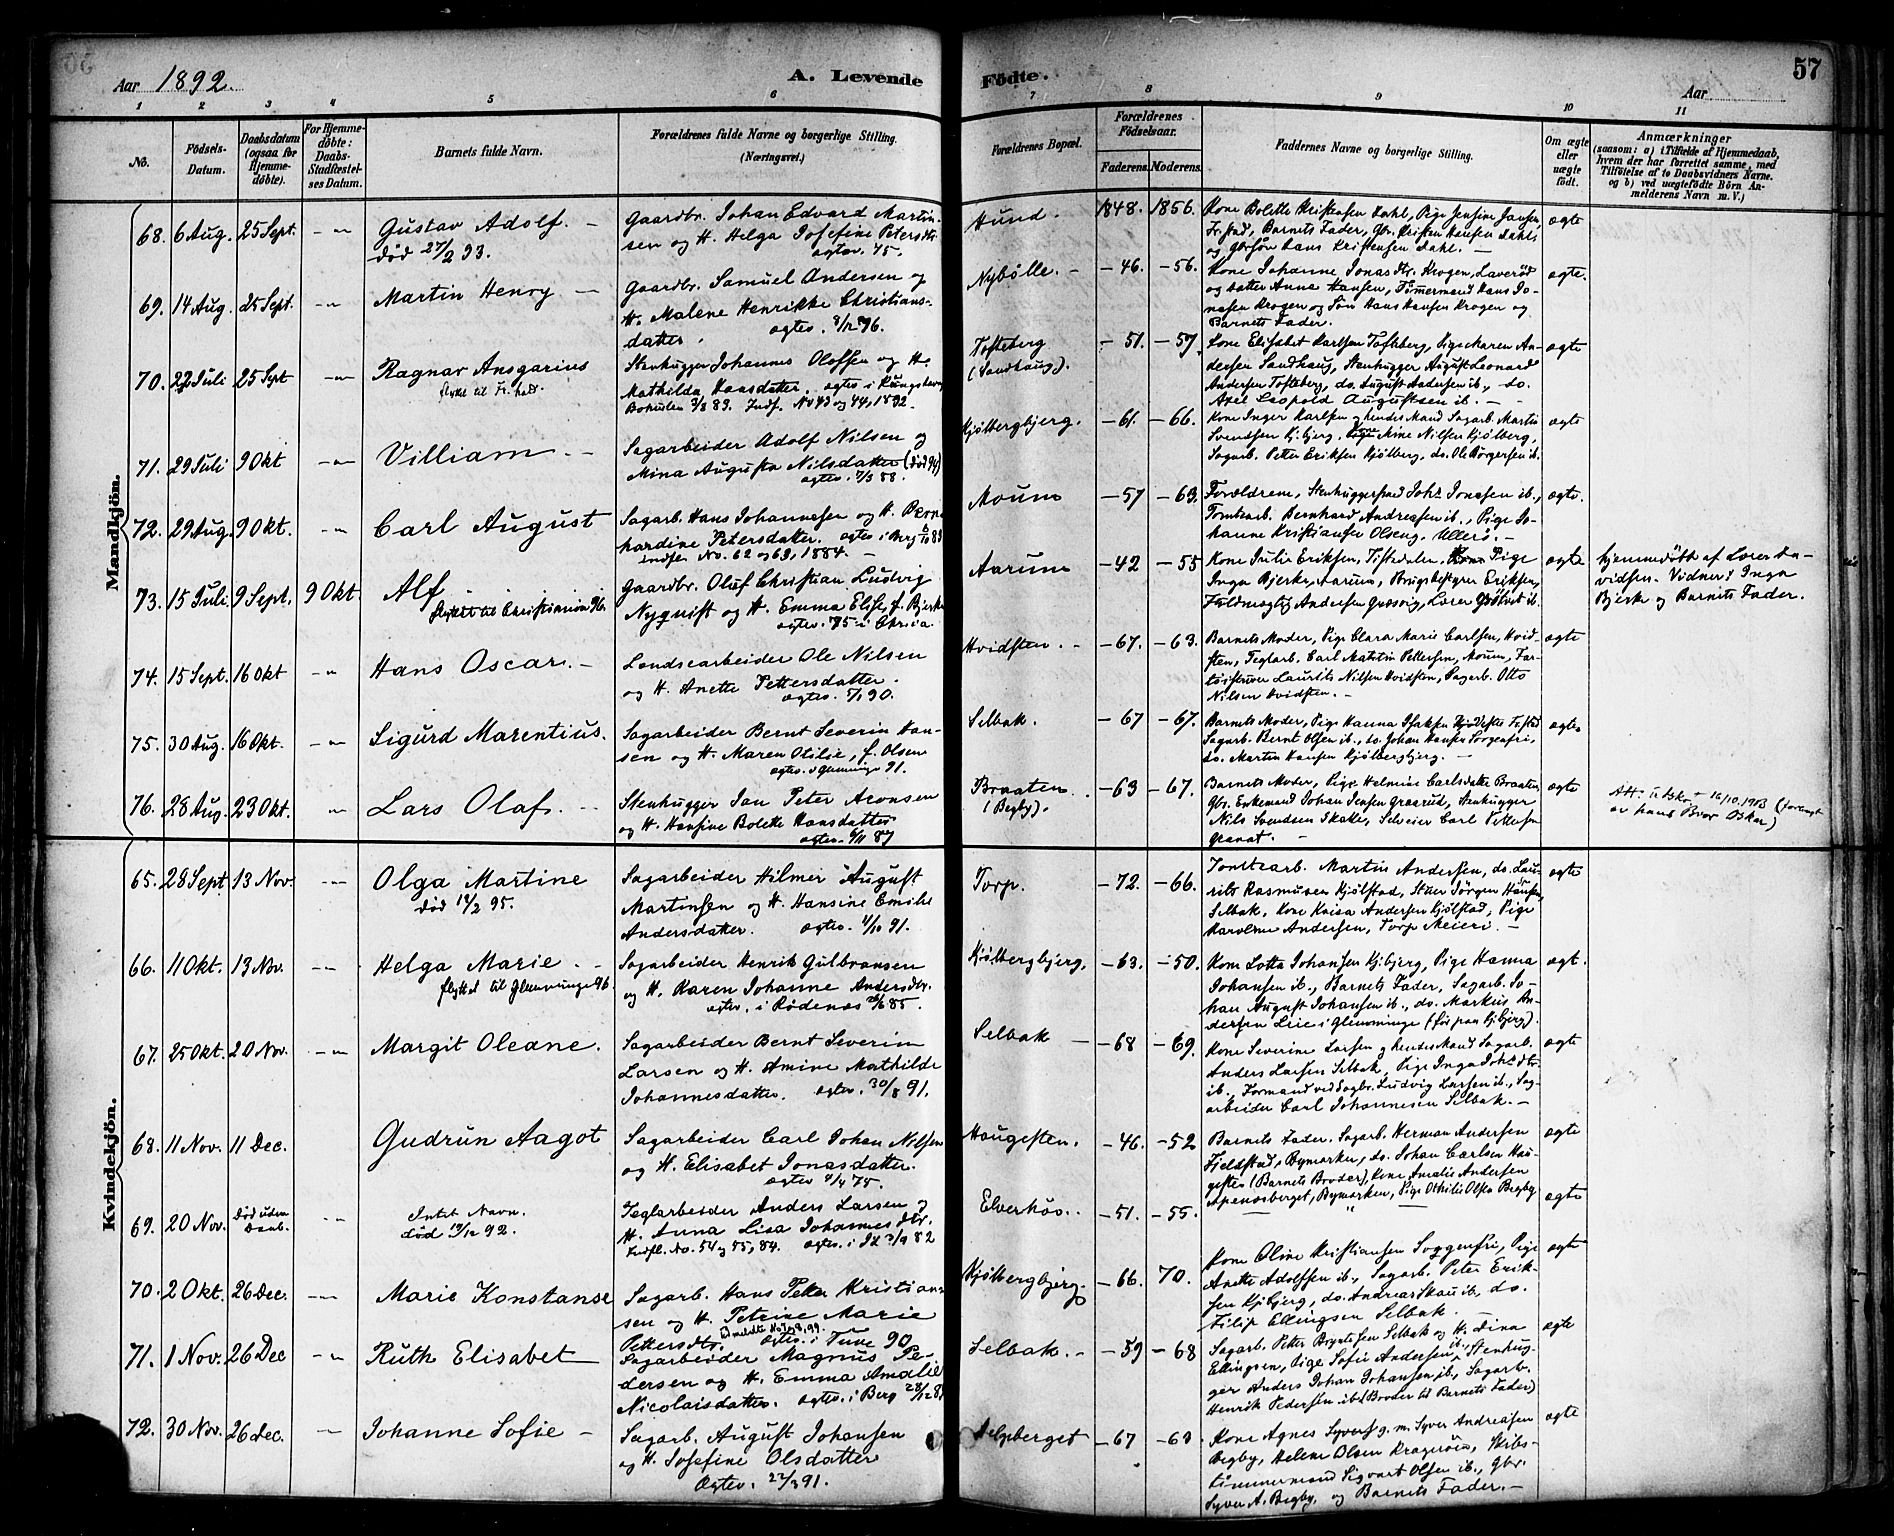 Aar 1892.
A. Levende
Födte.
57
Aar
1 2 3 4 5 6 7 8 9 10 11
No.
Födsels-
Datum.
Daabsdatum
(ogsaa for
Hjemme-
döbte).
For Hjemme-
döbte:
Daabs-
Stadfæstel-
ses Datum.
Barnets fulde Navn.
Forældrenes fulde Navne og borgerlige Stilling.
(Næringsvei.)
Forældrenes Bopæl.
Forældrenes
Födselsaar.
Faderens.
Moderens.
Faddernes Navne og borgerlige Stilling.
Om ægte
eller
uægte
födt.
Anmærkninger
(saasom: a) i Tilfælde af Hjemmedaab,
hvem der har forrettet samme, med
Tilföielse af to Daabsvidners Navne.
og b) ved uægtefödte Börn An-
melderens Navn m. V.)
Mandkjön.
68. 6 Aug. 25 Sept. -"- Gustav Adolf. -
død 27/2 93.
Gaardbr. Johan Edvard Martin-
sen og H. Helga Josefine Petersdtr
ægtev. 75.
Hund. 1848. 1856.
Kone Bolette Kristensen Dahl, Pige Jensine Jansen,
Fr.stad, Barnets Fader, Gbr. Kristen Hansen Dahl
og Gbrsøn Hans Kristensen Dahl. -
ægte
69. 14 Aug. 25 Sept. -"- Martin Henry -
Gaardbr. Samuel Andersen og
H. Malene Henrikke Christians-
datter. ægtev. 3/12 76.
Nybølle. - -46. -56.
Kone Johanne Jonasdtr. Krogen, Laverød
og datter Anna Hansen, Tømmermand Hans Jo-
nasen Krogen og Søn Hans Hansen Krogen og
Barnets Fader.
ægte.
70. 22 Juli 25 Sept -"- Ragnar Ansgarius
flyttet til Fr.hald.
Stenhugger Johannes Oloffen og H.
Mathilda Haasdatter. ægtev i Kungshavn
Bohuslen 3/3 83. Indf. No 43 og 44, 1892.
Tofteberg
(Sandhaug).
-51. -57.
Kone Elisabet Karlsen Tofteberg, Pige Karen An-
dersen Sandhaug, Stenhugger August Leonard
Andersen Tofteberg, do. August Andersen ib., do.
Axel Leopold Augustsen ib. -
ægte
71. 29 Juli 9 Okt -"- Villiam. -
Sagarbeider Adolf Nilsen og
Mina Augusta Nilsdatter (død 94)
ægtev. 7/3 88.
Kjølbergbjerg. -61. -66.
Kone Inger Karlsen og hendes Mand Sagarb. Martin
Svendsen Kj.bjerg, Kone Mine Nilsen Kjølberg,
Sagarb. Petter Eriksen Kjølberg, do. Ole Børgersen ib.
ægte
72. 29 Aug. 9 Okt. -"- Carl August
Sagarb. Hans Johannesen og H. Bern-
hardine Petersdatter. ægtev i Berg 83
indfør No. 62 og 63, 1884. -
Moum -57 -63.
Forældrene, Stenhuggerfaed Johs Jonasen ib.,
Tomtearb. Bernhard Andreasen ib., Pige Jo-
hanne Kristiansen Olseng. Ullerø. -
ægte.
73. 15 Juli 9 Sept. 9 Okt. Alf
flyttet til Christiania 96.
Gaardbr. Oluf Christian Ludvig
Nyquist og H. Emma Elise, f. Bjerke
ægtev. 85 i Chr.ia.
Aarum -42 -55
Kone Julie Eriksen, Tistedalen, Pige
Inga Bjerke, Aarum, Brugsbestyrer Eriksen,
Fuldmægtig Andersen Græsvig, Lærer Grøtvet ib.
ægte
Hjemmedøbt af Lærer Da-
vidsen. Vidner: Inga
Bjerke og Barnets Fader.
74. 15 Sept. 16 Okt -"- Hans Oscar. -
Londsearbeider Ole Nilsen
og H. Anette Pettersdatter.
ægtev. 7/1 90.
Hvidsten. - -67. -63.
Barnets Moder, Pige Clara Marie Carlsen, Hvid-
sten, Teglarb. Carl Mathias Pettersen, Moum, Far-
tøiskriver Laurits Nilsen Hvidsten, Sagarb. Otto
Nilsen Hvidsten. -
ægte
75. 30 Aug. 16 Okt. -"- Sigurd Marentius.
Sagarbeider Bernt Severin Han-
sen og H. Maren Otilie, f. Olsen
ægtev. i Glemminge 91.
Selbak. -67 -67.
Barnets Moder, Pige Hanna Isaksen Fr.stad
Sagarb. Bernt Olsen ib., do. Johan Hansen Sorgenfri,
do. Martin Hansen Kjølbergbjerg. -
ægte.
76. 28 Aug. 23 Okt. " Lars Olaf. -
Stenhugger Jan Peter Aronsen
og H. Hansine Bolette Hansdatter
ægtev. 6/11 87
Braaten.
(Begby).
-63 -67.
Barnets Moder, Pige Helmine Carlsdatter Braaten,
Gbr. Enkemand Johan Jensen Graarud, Stenhugger
Nils Svendsen Skatte, Selveier Carl Pettersen
Granat. -
ægte
Att. 16/10.1913 (forlangt
av hans Bror Oskar)
Kvindekjön.
65. 28 Sept 13 Nov. -"- Olga Martine
død 19/2 95.
Sagarbeider Hilmer August
Martinsen og H. Hansine Emilie
Andersdatter. ægtev. 1/10 91.
Torp. -72. -66.
Tomtearb. Martin Andersen, do. Lau-
rits Rasmusen Kjølstad, Stuer Jørgen Hansen,
Selbak, Kone Kaisa Andersen Kjølstad, Pige
Karoline Andersen, Torp Meieri. -
ægte
66. 11 Okt. 13 Nov. -"- Helga Marie. -
flyttet til Glemminge 96.
Sagarbeider Henrik Gulbransen
og H. Karen Johanne Andersdtr.
ægtev. i Rødenæs 26/6 85.
Kjølbergbjerg. -63. -50.
Kone Lotta Johansen Kj.bjerg, Pige Hanna
Johansen ib., Barnets Fader, Sagarb. Jo-
han August Johansen ib., do. Markus An-
dersen Leie i Glemminge (før paa Kj.bjerg).
ægt.
67. 25 Okt. 20 Nov. -"- Margit Oleane.
Sagarbeider Bernt Severin
Larsen og H. Amine Mathilde
Johannesdatter. ægtev. 30/8 91.
Selbak - -68 -69.
Kone Severine Larsen og hendes Mand Sagarb.
Anders Larsen Selbak, Pige Inga Johs.dtr
ib., Formand ved Sagbr. Ludvig Larsen ib., Sag-
arbeider Carl Johannesen Selbak. -
ægte
68. 11 Nov. 11 Dec. Gudrun Aagot
Sagarbeider Carl Johan Nilsen
og H. Elisabet Jonasdatter.
ægtev 4/4 75.
Haugesten. -46. -52
Barnets Fader. Sagarb. Herman Andersen
Fjeldstad, Bymarken, do. Johan Carlsen Hau-
gesten (Barnets Broder), Kone Amalie Andersen
Apenæsberget, Bymarken, Pige Othilie Olsen Begby
ægte
69. 20 Nov. Død uden
Daab. " Intet Navn.
død 19/12 92.
Teglarbeider Anders Larsen og
H. Anna Lisa Johannesdtr.
Indfl. No. 54 og 55, 84. ægtev. i Id 3/9 82
Elverhøi. -51. -55. "
ægte
70. 2 Okt. 26 Dec. -"- Marie Konstanse
Sagarb. Hans Peter Kristian-
sen og H. Petrine Marie
Pettersdtr. ægtev. i Tune 90
Kjølbergbjerg. -66. 70.
Kone Oline Kristiansen Soggenfri, Pige
Anette Adolfsen ib., Sagarb. Peter Erik-
sen Kj.bjerg, do. Andreas Skau ib., do.
Filip Ellingsen Selbak.
ægte
71. 1 Nov. 26 Dec -"- Ruth Elisabet
Sagarbeider Magnus Pe-
dersen og H. Emma Amalie
Nicolaisdatter. ægtev. i Berg 28/12 8
Selbak. - -59 -68
Sagarb. Petter Bryntesen Selbak og H. Dina
Ellingsen, Pige Sofie Andersen ib., Stenhug-
ger Anders Johan Johansen ib., Sagarb.
Henrik Pedersen ib. (Broder til Barnets Fader)
ægte
72. 30 Nov. 26 Dec. -"- Johanne Sofie -
Sagarb. August Johansen
og H. Josefine Olsdatter
Ægtev. 22/3 91.
Helgeberget -67 -63
Kone Agnes Syvers g. m. Syver Andreasen
Begby, Helene Olsen Kragerøen, Skibs-
tømmermand Sigvart Olsen ib., Gbr.
Syver A. Begby, og Barnets Fader. -
ægte